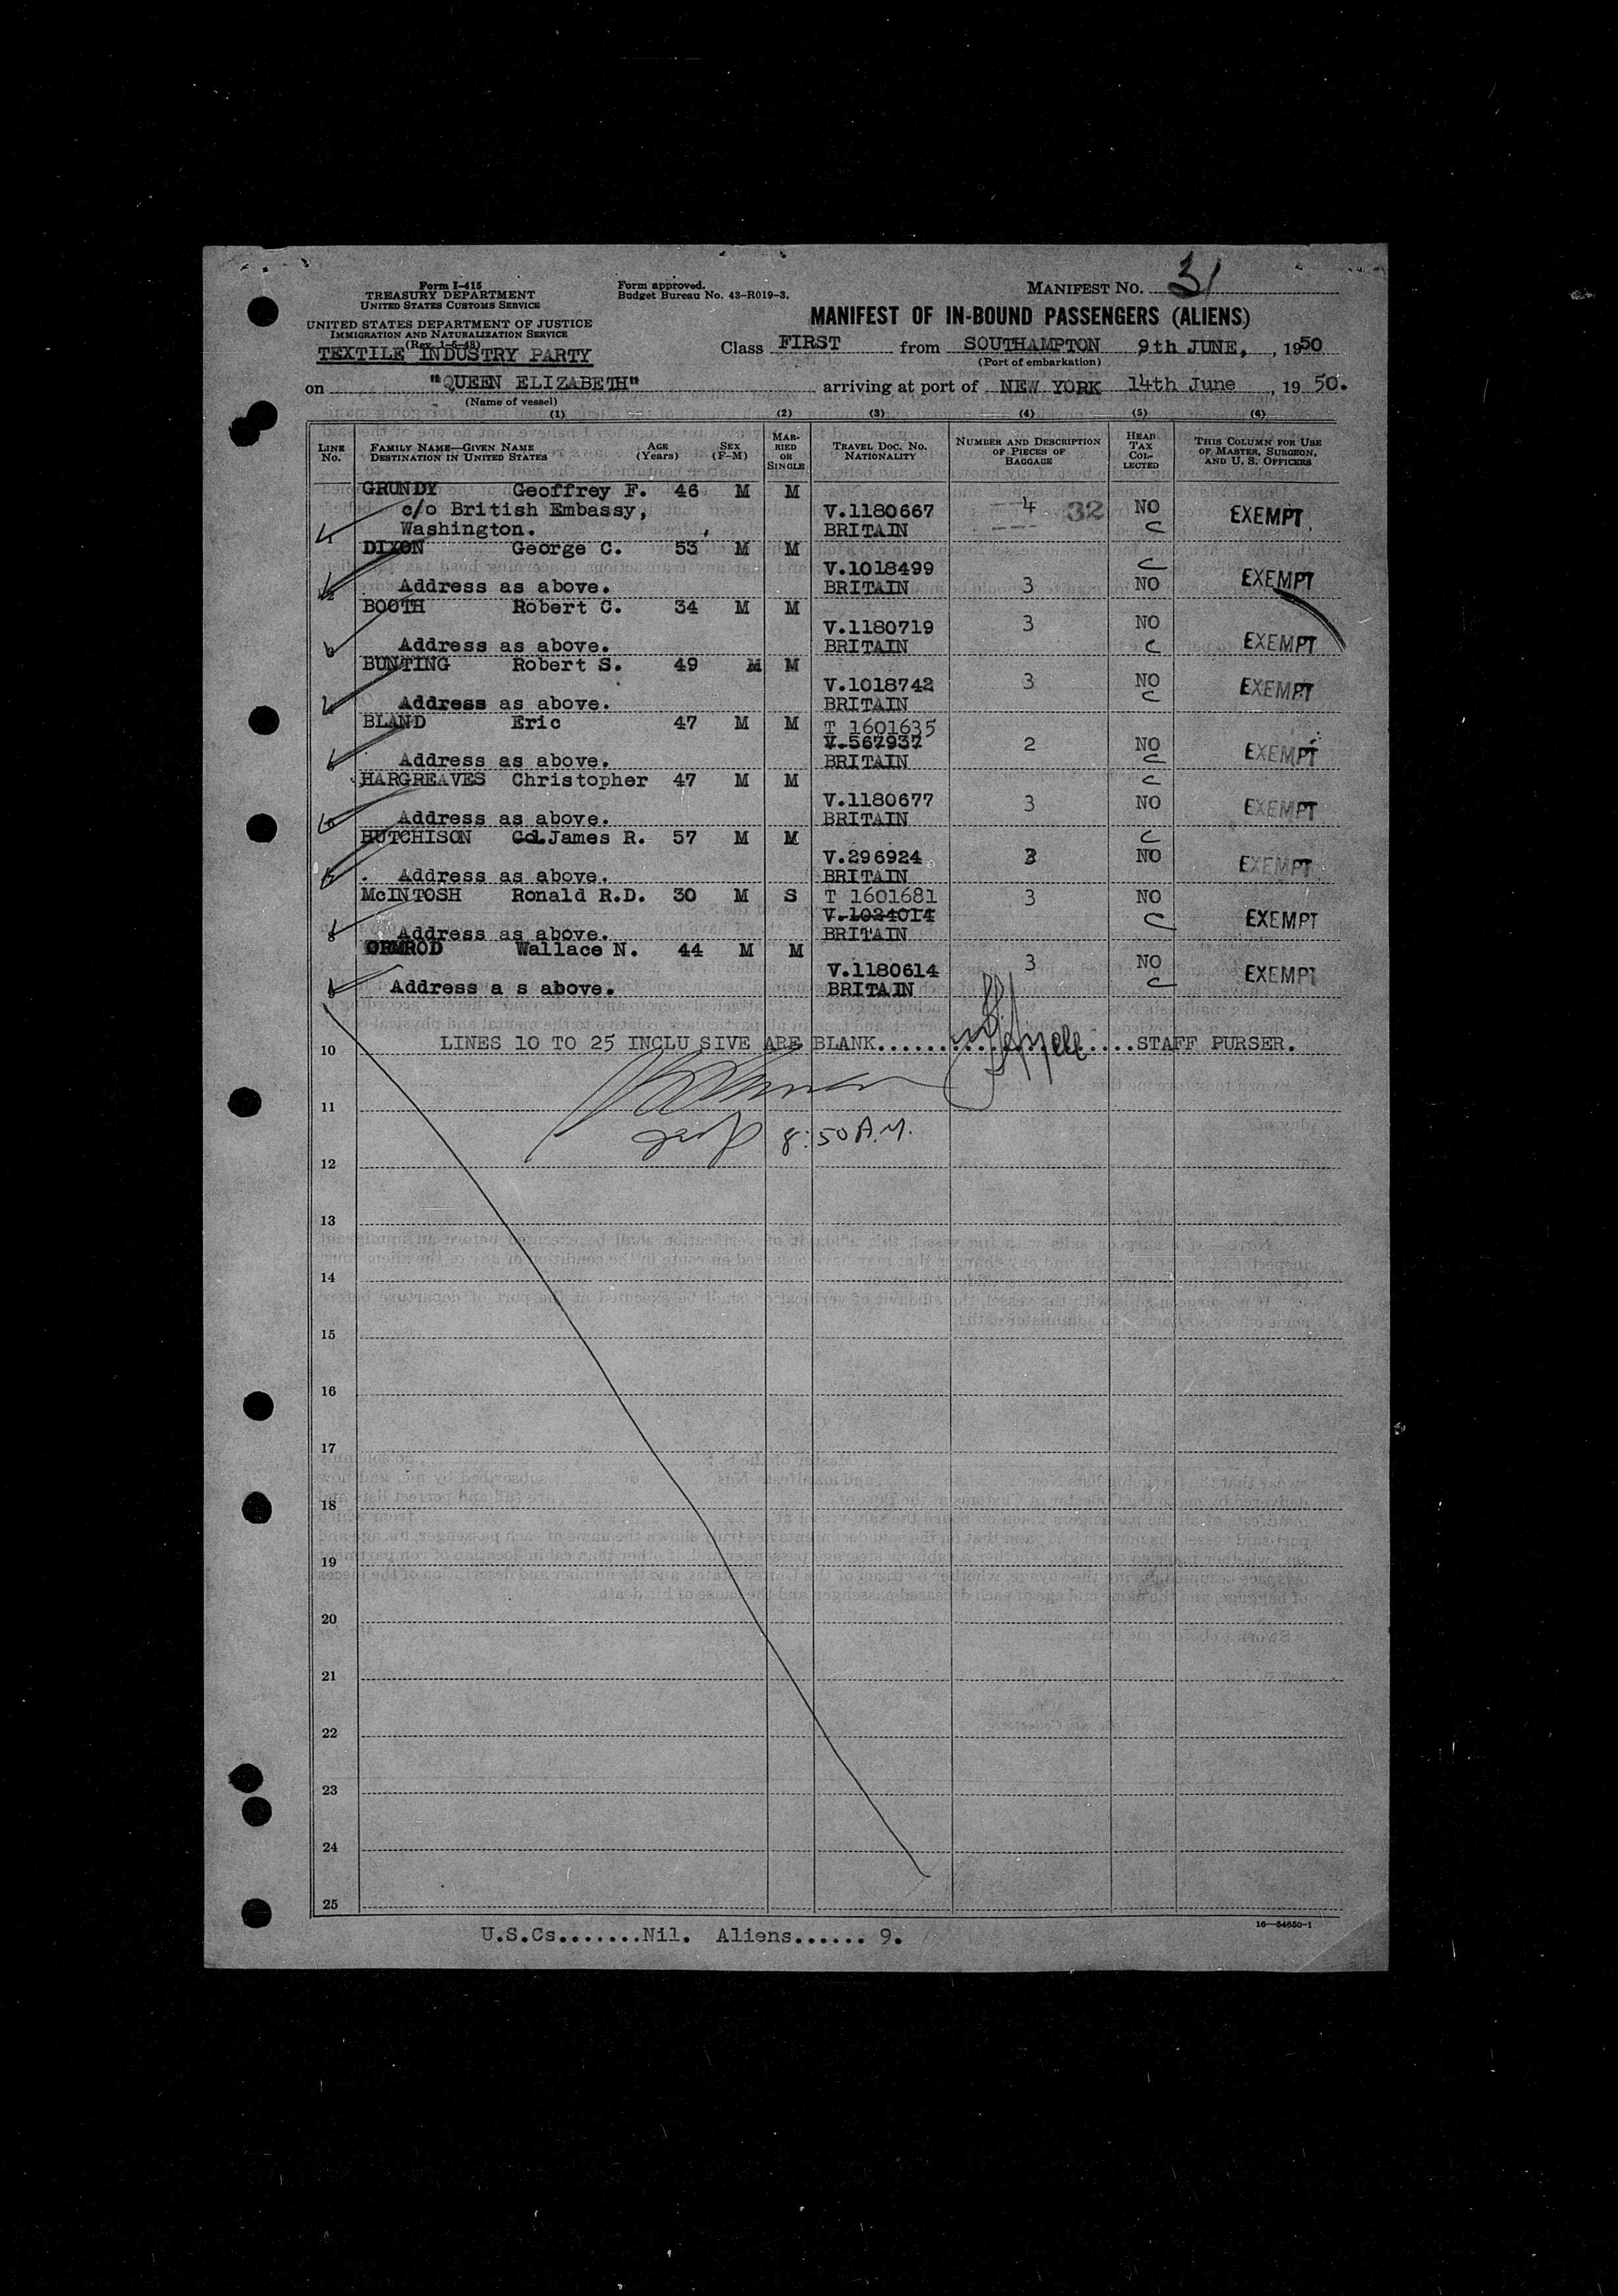 Form I-415
TREASURY DEPARTMENT
UNITED STATES CUSTOMS SERVICE
UNITED STATES DEPARTMENT OF JUSTICE
IMMIGRATION AND NATURALIZATION SERVICE
(Rev. 1-6-48)
TEXTILE INDUSTRY PARTY
Form approved.
Budget Bureau No. 43-R019-3.
MANIFEST NO. 31
MANIFEST OF IN-BOUND PASSENGERS (ALIENS)
Class FIRST from SOUTHAMPTON 9th JUNE, , 1950
(Port of embarkation)
on "QUEEN ELIZABETH" arriving at port of NEW YORK 14th June , 19 50.
(Name of vessel)
(1) (2) (3) (4) (5) (6)
LINE No. FAMILY NAME—GIVEN NAME DESTINATION IN UNITED STATES AGE (Years) SEX (F-M) MARRIED OR SINGLE TRAVEL DOC. NO. NATIONALITY NUMBER AND DESCRIPTION OF PIECES OF BAGGAGE HEAD TAX COLLECTED THIS COLUMN FOR USE OF MASTER, SURGEON, AND U. S. OFFICERS
GRUNDY Geoffrey F. 46 M M
c/o British Embassy, V.1180667 4 32 NO EXEMPT
1 Washington. BRITAIN C
DIXON George C. 53 M M
V.1018499 C EXEMPT
2 Address as above. BRITAIN 3 NO
BOOTH Robert C. 34 M M
V.1180719 3 NO
3 Address as above. BRITAIN C EXEMPT
BUNTING Robert S. 49 M M
V.1018742 3 NO C EXEMPT
Address as above. BRITAIN
BLAND Eric 47 M M T 1601635
V.567937 2 NO EXEMPT
Address as above. BRITAIN C
HARGREAVES Christopher 47 M M C
V.1180677 3 NO EXEMPT
Address as above. BRITAIN
HUTCHISON Col.James R. 57 M M C
V.296924 3 NO EXEMPT
Address as above. BRITAIN
McINTOSH Ronald R.D. 30 M S T 1601681 3 NO
V.1024014 C EXEMPT
8 Address as above. BRITAIN
ORMROD Wallace N. 44 M M
V.1180614 3 NO EXEMPT
Address a s above. BRITAIN C
10 LINES 10 TO 25 INCLU SIVE ARE BLANK.......................STAFF PURSER.
11
8:50 A.M.
12
13
14
15
16
17
18
19
20
21
22
23
24
25
16—54650-1
U.S.Cs.......Nil. Aliens...... 9.